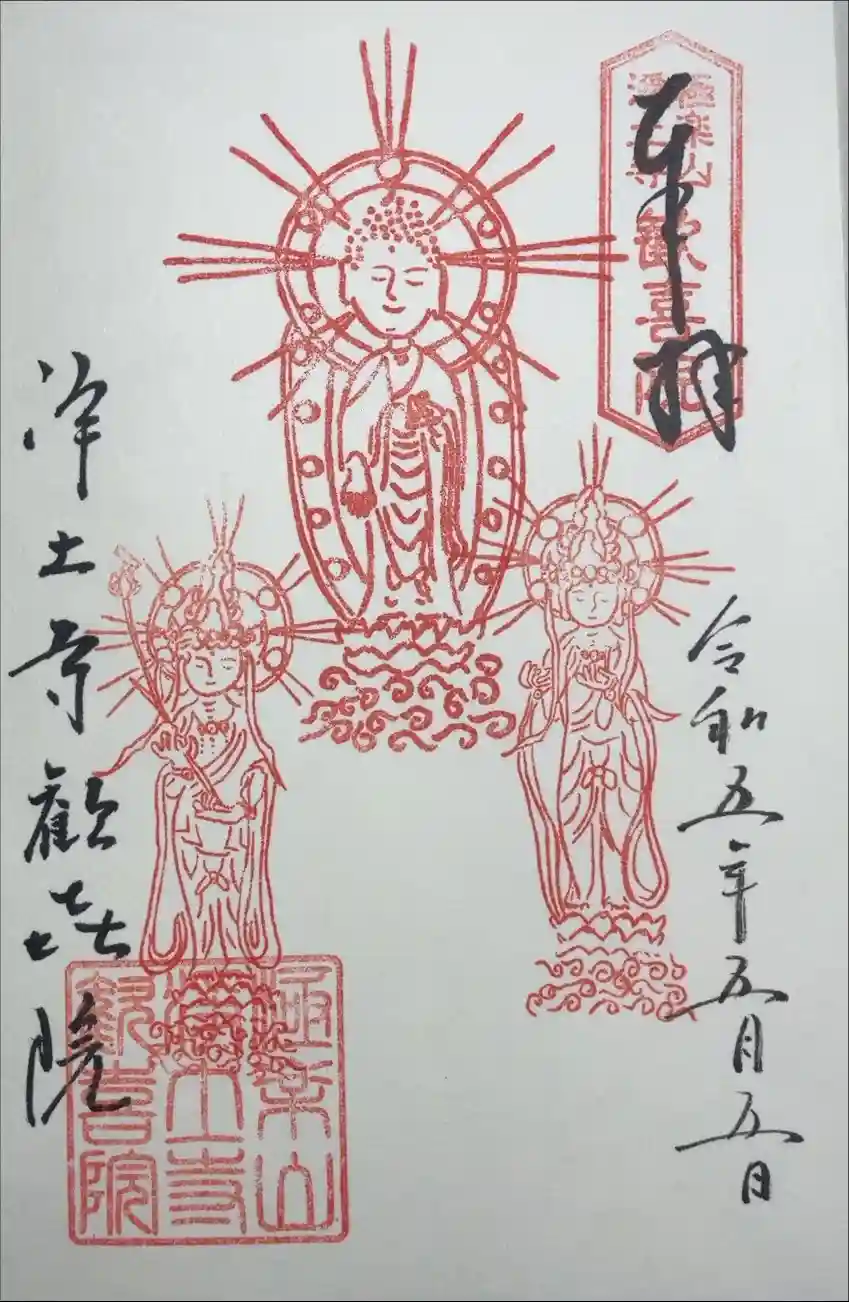 極楽山
浄土寺
歓喜院
奉拝
令和五年五月五日
浄土寺歡㐂院
極楽山
浄土寺
歓喜院